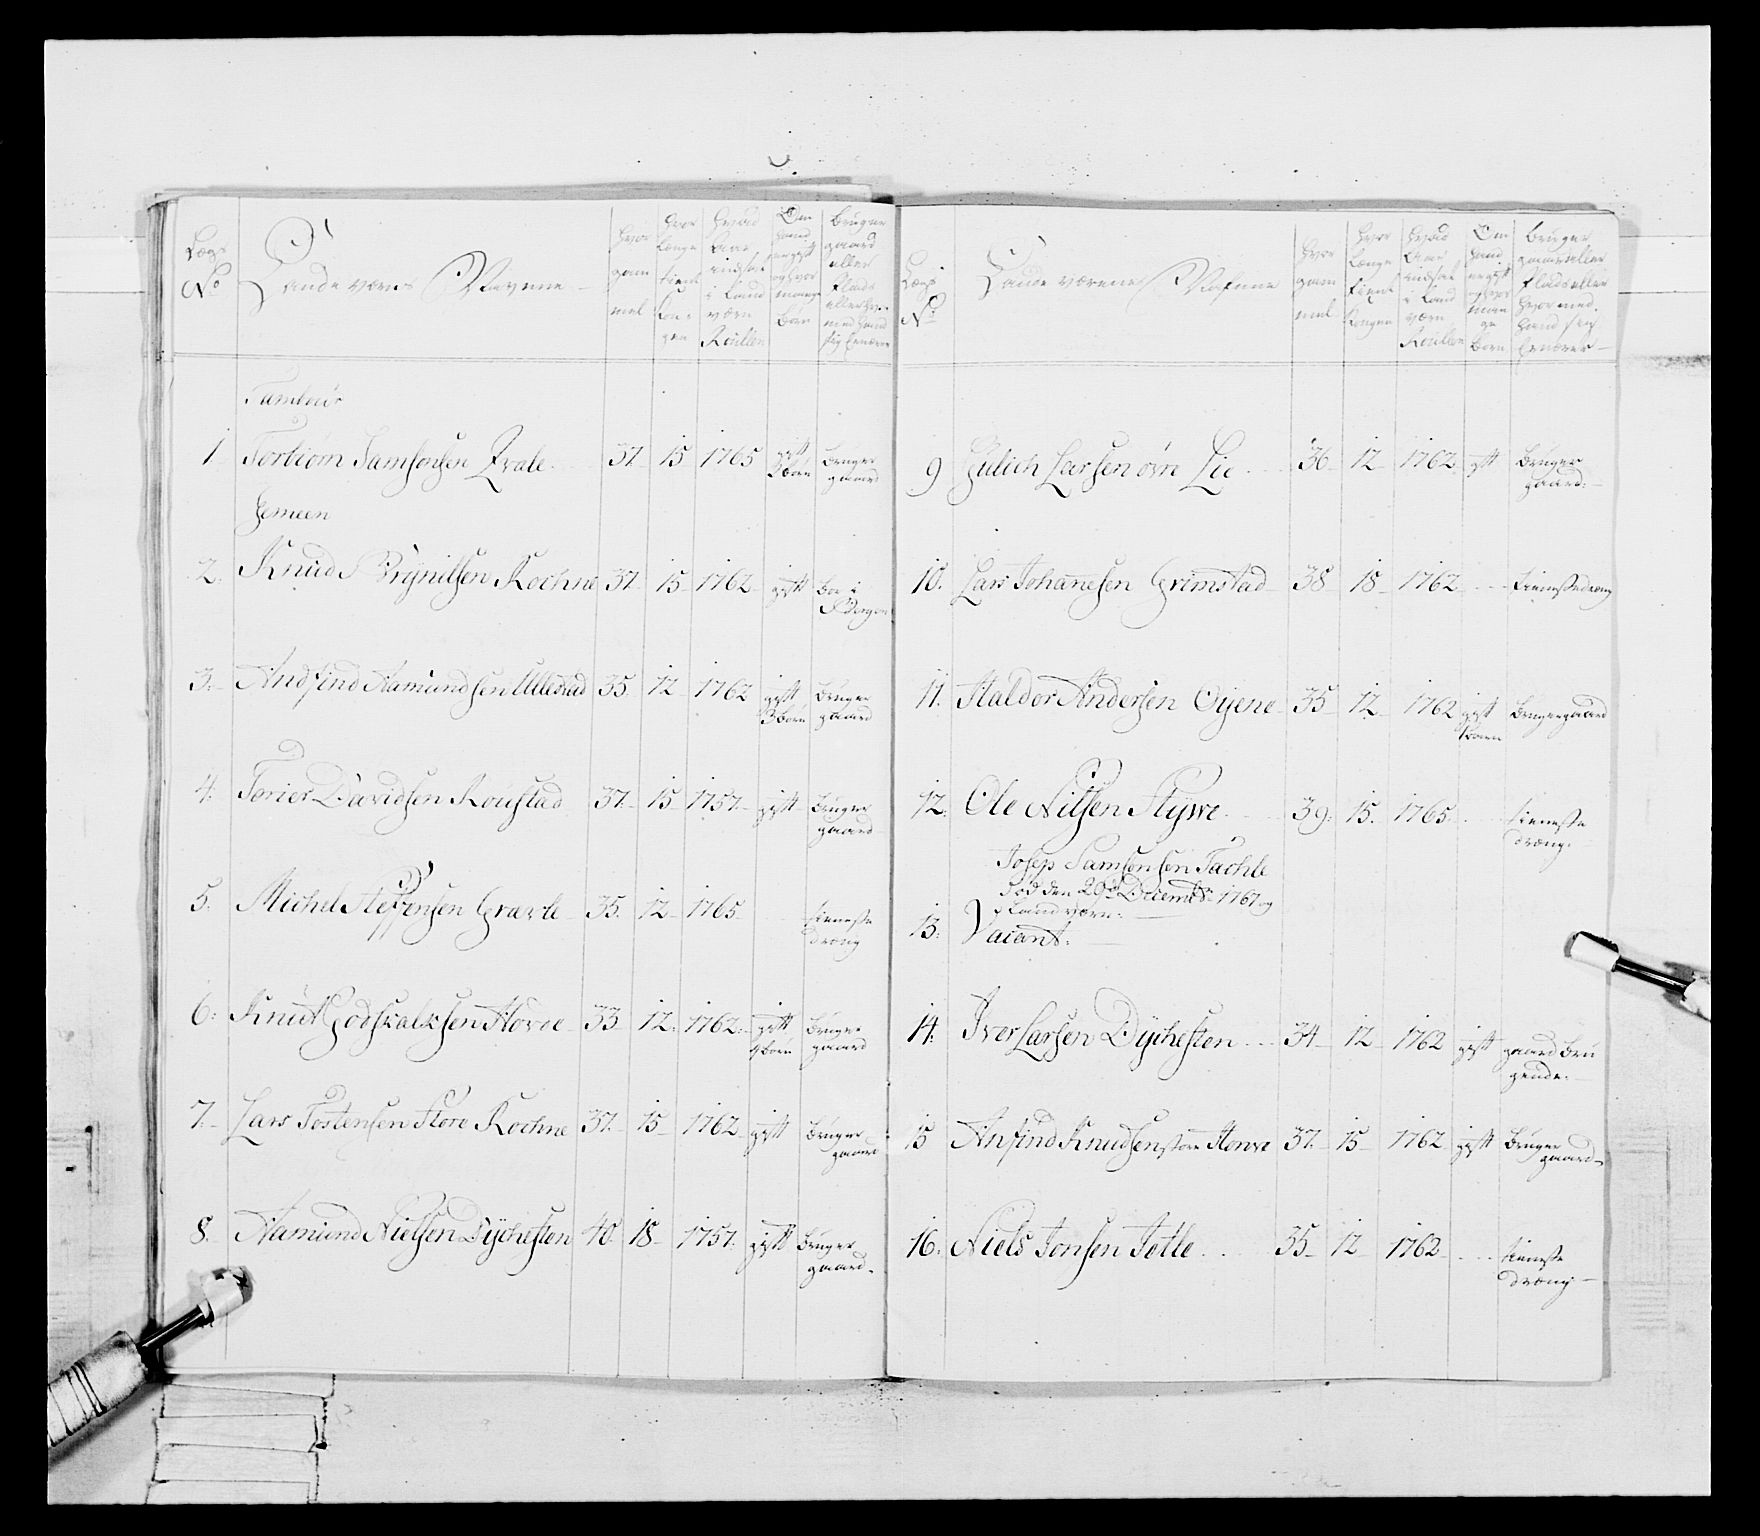 Lægs
No
Landeværns Navene
hvor
gam
mel
hvor
længe
tient
Kon-
gen
hvad
Aar
indsat
i Land
værn
Roullen
Om
hand
er gift
og hvor
mange
børn
bruger
gaard
eller
Plads
eller hvor
med hand
sig Ernærer
Tambuur
1 Torbiørn Samsonsen Qvale 37 15 1765 gift 3 børn bruger gaard
Gemeen
2. Knud Brynilsen Rochne 37 15 1762 gift boe i Bergen
3. Andfind Aamundsen Ullestad 35 12 1762 gift 3 børn bruger gaard
4. Torier Davidsen Roustad 37 15 1757 gift bruger gaard
5. Michel Steffensen Grævle 35 12 1765 tieneste dræng
6. Knut Godskalksen Howe 33 12 1762 gift børn bruger gaard
7. Lars Tostensen Store Rochne 37 15 1762 gift bruger gaard
8. Aamund Nielsen Dÿchesten 40 18 1757 gift bruger gaard
Lægs
No
Landeværenes Nafnne
hvor
gam
mel
hvor
længe
tient
Kongen
hvad
Aar
indsat
i Land
værn
Roullen
Om
hand
er gift
og hvor
man
ge
born
bruger
gaard eller
Plads eller
hvor med
hand sig
Ernærer
9 Gulich Larsen øvre Lie 36 12 1762 gift bruger gaard
10. Lars Johanesen Grimstad 38 18 1762 tienestedræng
11. Haldor Andersen Oÿene 35 12 1762 gift 1 barn bruger gaard
12. Ole Nilsen Stÿwe 39 15 1765 tieneste dræng
Josep Samsonsen Tachle
død den 29de Decembr 1767 og
i Landværn
13. Vacant.
14. Iver Larsen Dÿchesten 34 12 1762 gift gaard bru gende
15 Anfind Knudsen store Howe 37 15 1762 gift bruger gaard
16. Niels Jonsen Totle 35 12 1762 tieneste dræng